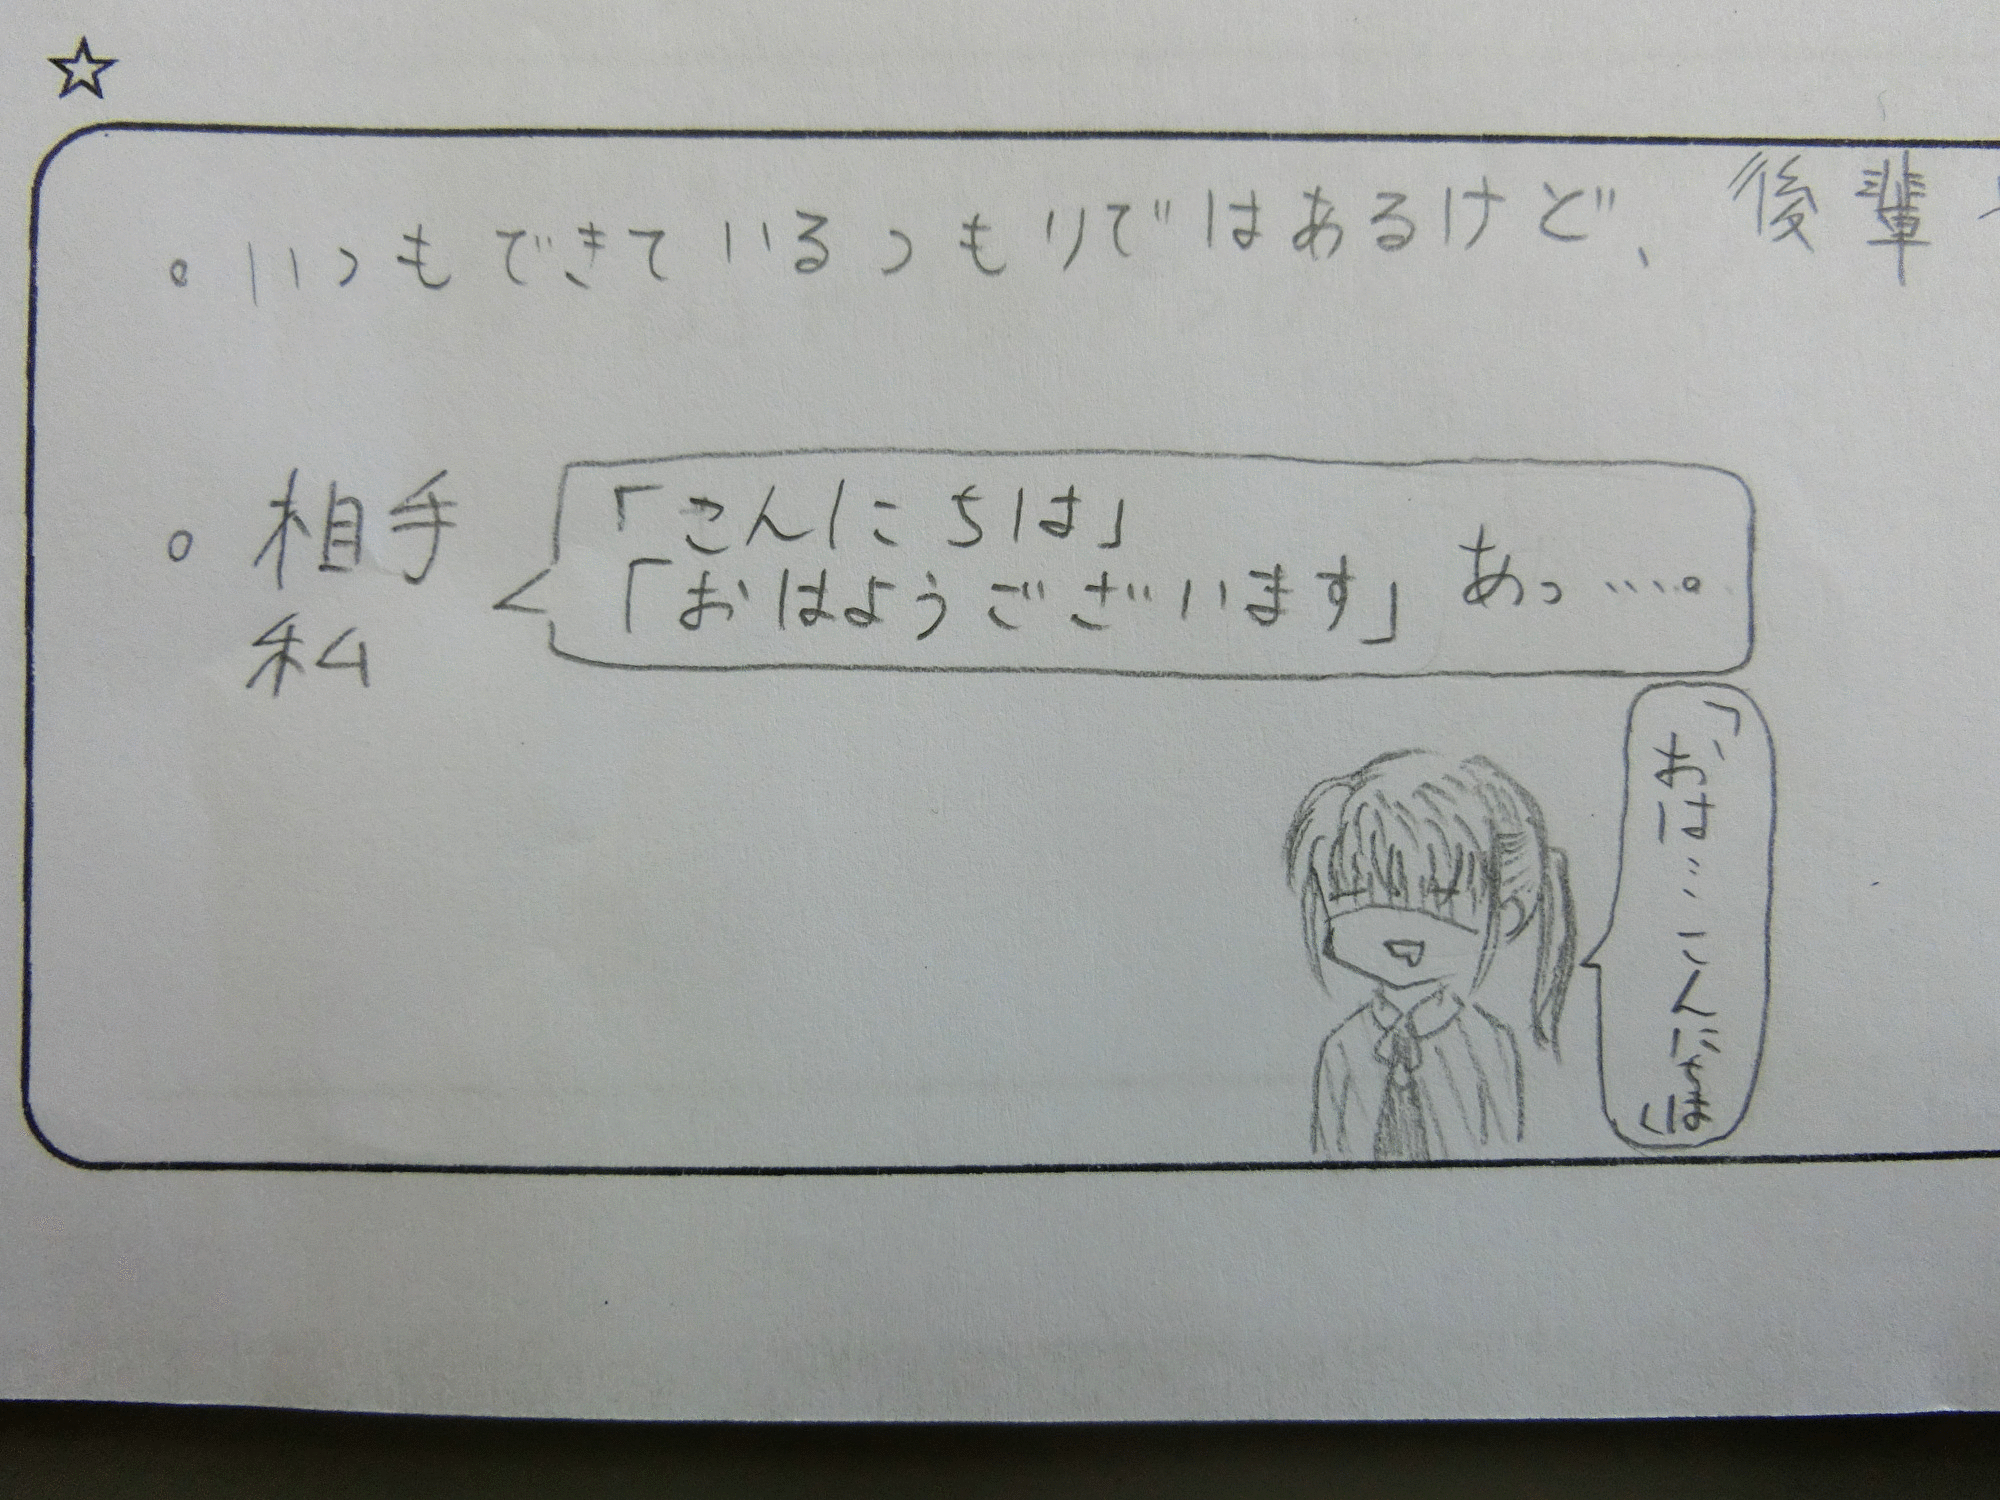 ☆
。いつもできているつもりではあるけど、後輩
。相手「こんにちは」
私「おはようございます」あっ…。